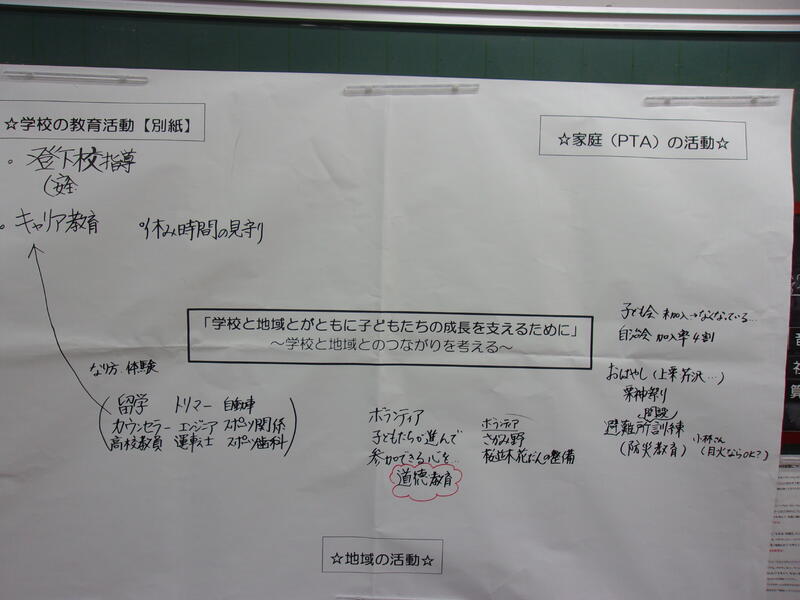 ☆学校の教育活動【別紙】
☆家庭（PTA）の活動☆
・登下校指導
(安全
・キャリア教育
○休み時間の見守り
「学校と地域とがともに子どもたちの成長を支えるために」
～学校と地域とのつながりを考える～
子ども会 未加入→なくなっている...
自治会 加入率4割
なり方.体験
留学 トリマー 自動車
カウンセラー エンジニア スポーツ関係
高校教員 運転士 スポーツ歯科
ボランティア
子どもたちが進んで
参加できる心を...
道徳教育
ボランティア
さがみ野
桜並木花だんの整備
おはやし(上栗芹沢...)
栗神祭り
開設
避難所訓練
(防災教育)
小林さん
(月火ならOK?)
☆地域の活動☆